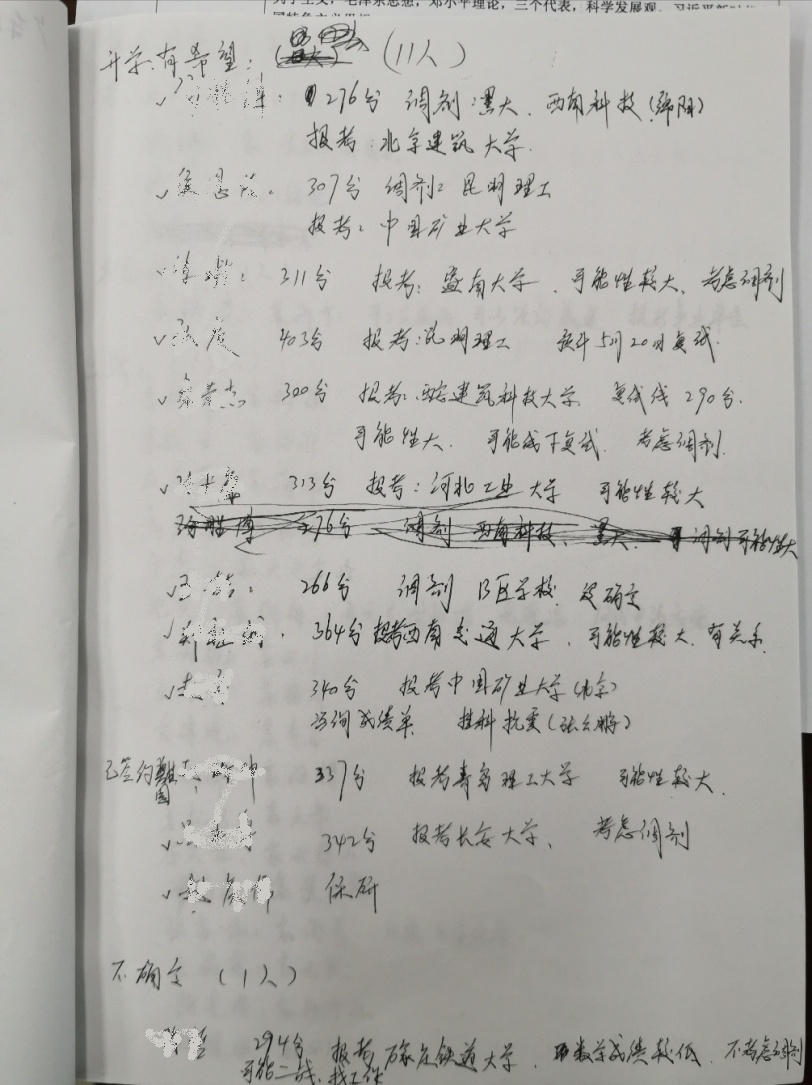 列宁主义，毛泽东思想，邓小平理论，三个代表，科学发展观，习近平新时代
升学有希望： (11人)
276分 调剂：黑大、西南科技(绵阳)
报考：北京建筑大学.
307分 调剂：昆明理工
报考：中国矿业大学
311分 报考：暨南大学、可能性较大、考虑调剂
403分 报考：昆明理工 预计5月20日复试.
300分 报考：西安建筑科技大学 复试线290分.
可能性大. 可能线下复试. 考虑调剂.
313分 报考：河北工业大学 可能性较大
276分 调剂 西南科技、黑大、 调剂可能性大
266分 调剂 B区学校. 没确定
364分 报考西南交通大学、可能性较大. 有关系.
340分 报考中国矿业大学(北京)
成绩单 挂科抗震
已签约 困 337分 报考青岛理工大学 可能性较大.
342分 报考长安大学、 考虑调剂
保研
不确定 (1人)
294分 报考石家庄铁道大学、 数学成绩较低、不考虑调剂
可能二战. 找工作